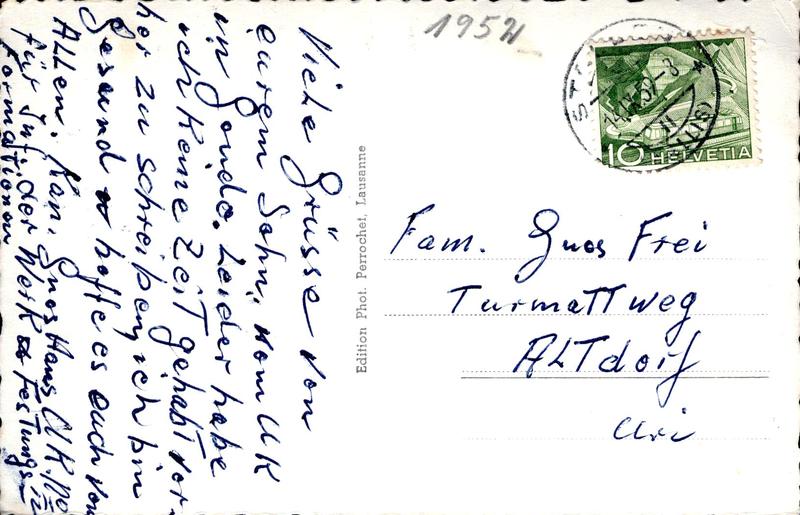 Viele Grüsse von
eurem Sohn, vom UK
in Gondo. Leider habe
ich keine Zeit gehabt vor-
her zu schreiben, ich bin
Gesund & hoffe es auch von
Allen. Kan. Gnos Hans UK.
für Inf. der Werk & Festungs-
formationen
1952
10 HELVETIA
Edition Phot. Perrochet, Lausanne
Fam. Gnos Frei
Turmattweg
ALTdorf
Uri